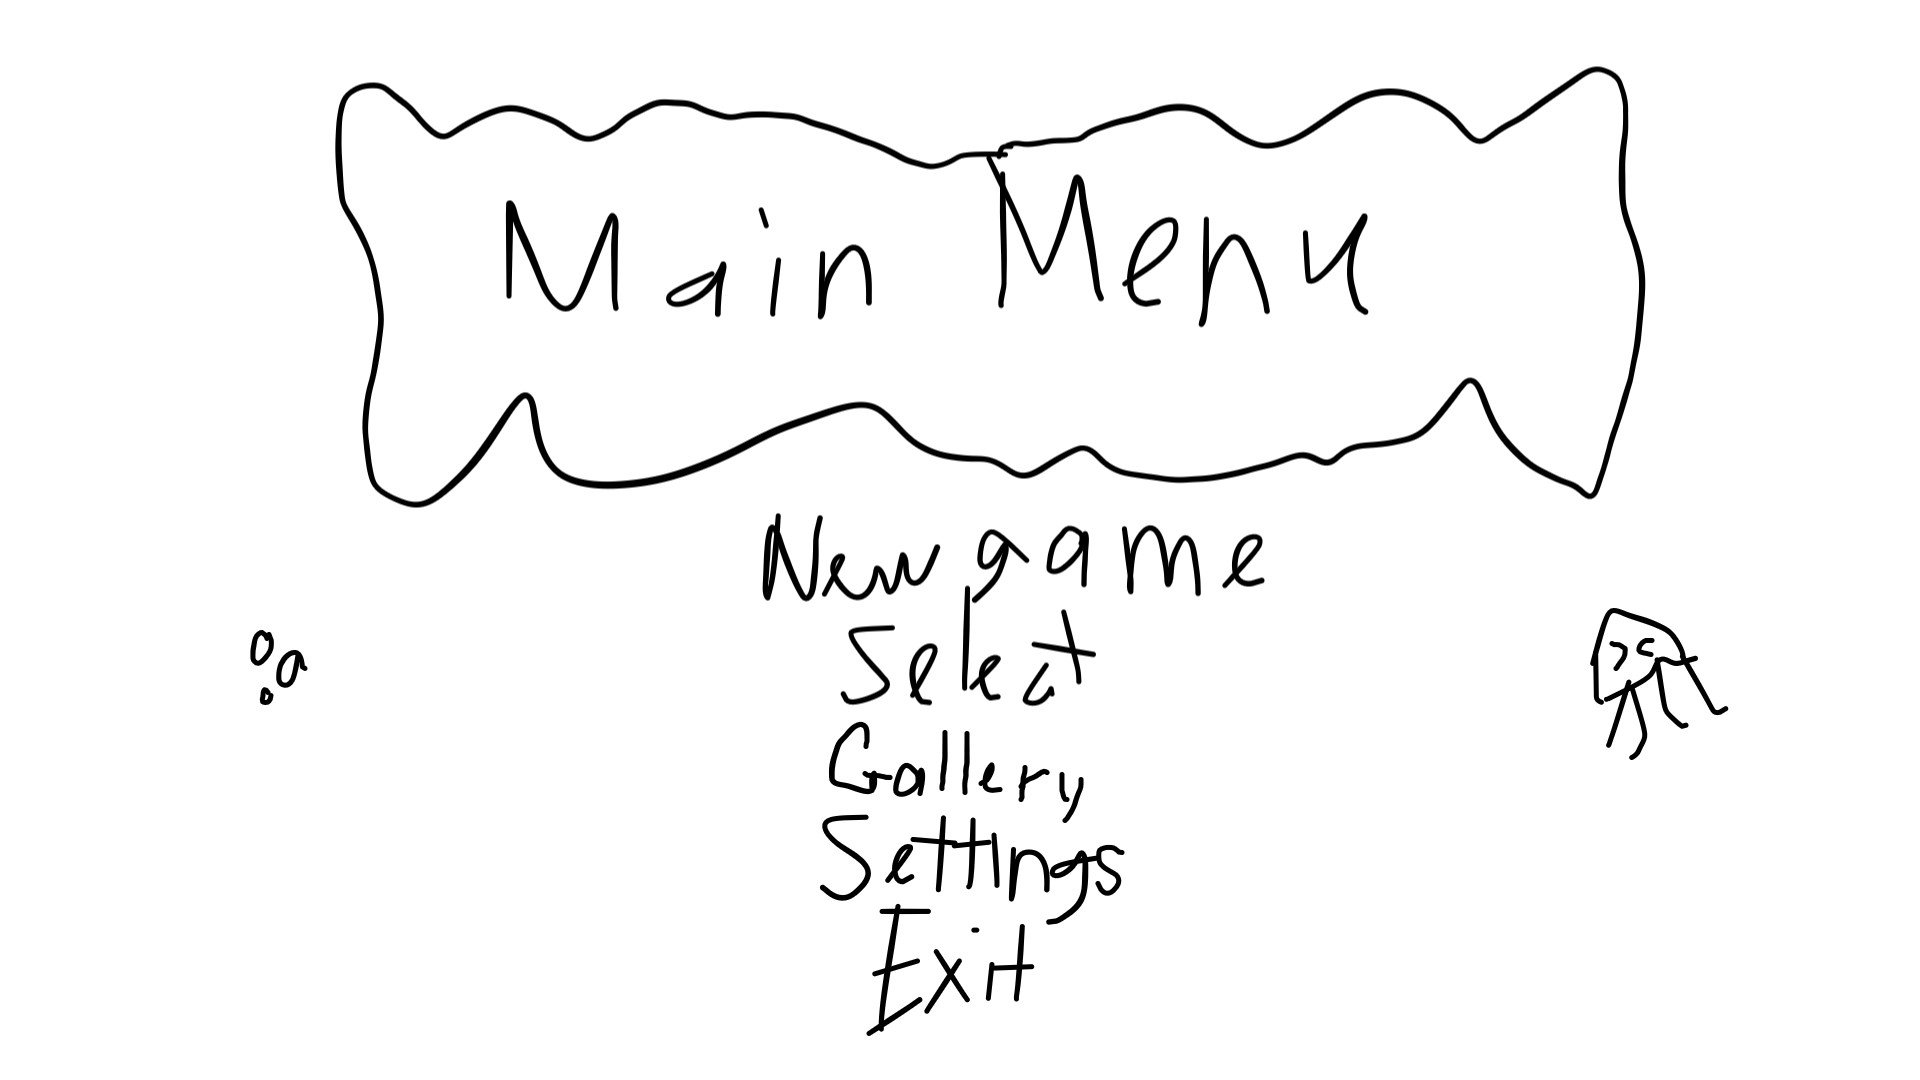 Main Menu
New game
Select
Gallery
Settings
Exit